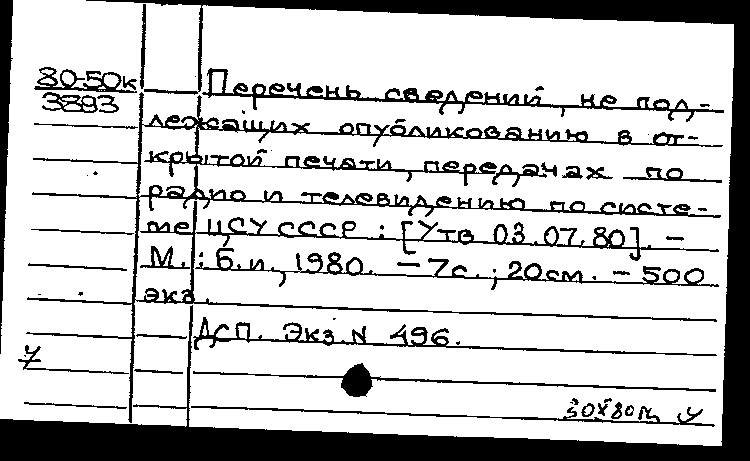 80-50к
3893
Перечень сведений, не под-
лежащих опубликованию в от-
крытой печати, передачах по
радио и телевидению по систе-
ме ЦСУ СССР : [Утв 03.07.80]. –
М. : Б.и., 1980. – 7с. ; 20см. – 500
экз.
ДСП. Экз. N 496.